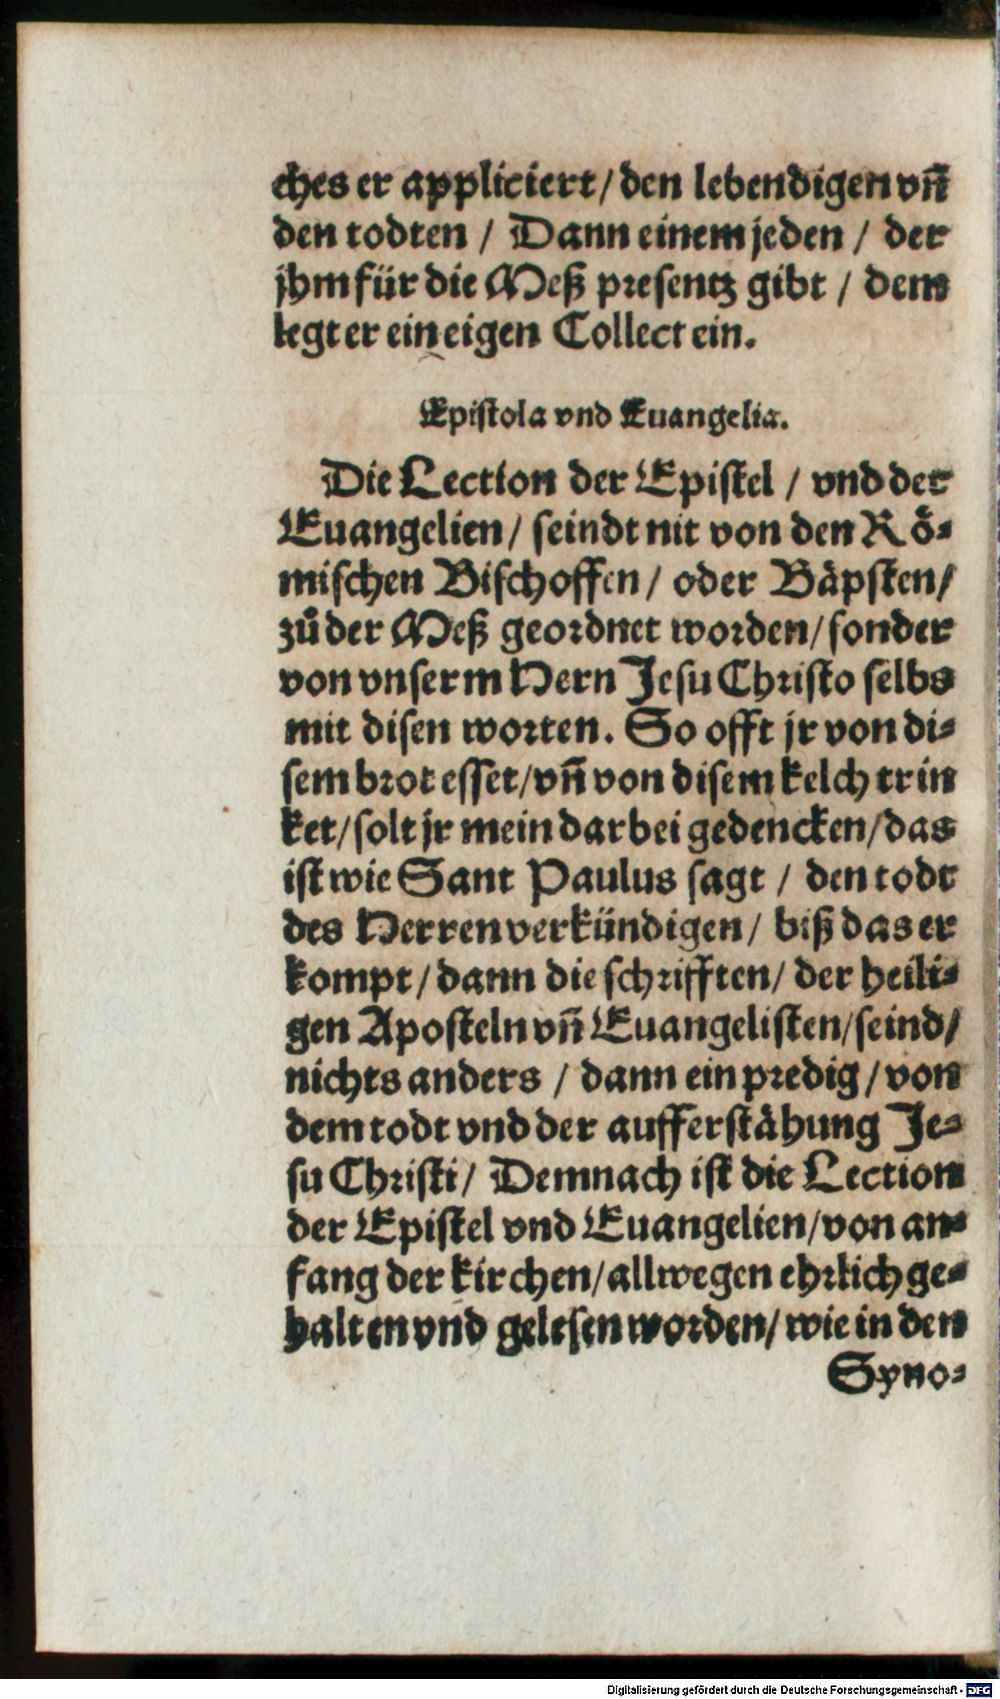 ches er appliciert/ den lebendigen vñ
den todten / Dann einem jeden / der
jhm für die Meß presentz gibt / dem
legt er ein eigen Collect ein.
Epistola vnd Euangelia.
Die Lection der Epistel / vnd der
Euangelien/ seindt nit von den Rö⸗
mischen Bischoffen/ oder Bäpsten/
zů der Meß geordnet worden/ sonder
von vnserm Hern Jesu Christo selbs
mit disen worten. So offt jr von di⸗
sem brot esset/ vñ von disem kelch trin
ket/ solt jr mein darbei gedencken/ das
ist wie Sant Paulus sagt / den todt
des Herren verkündigen/ biß das er
kompt/ dann die schrifften/ der heili⸗
gen Aposteln vñ Euangelisten/ seind/
nichts anders / dann ein predig/ von
dem todt vnd der aufferstähung Je⸗
su Christi/ Demnach ist die Lection
der Epistel vnd Euangelien/ von an⸗
fang der kirchen/ allwegen ehrlich ge⸗
halten vnd gelesen worden/ wie in den
Syno⸗
Digitalisierung gefördert durch die Deutsche Forschungsgemeinschaft - DFG